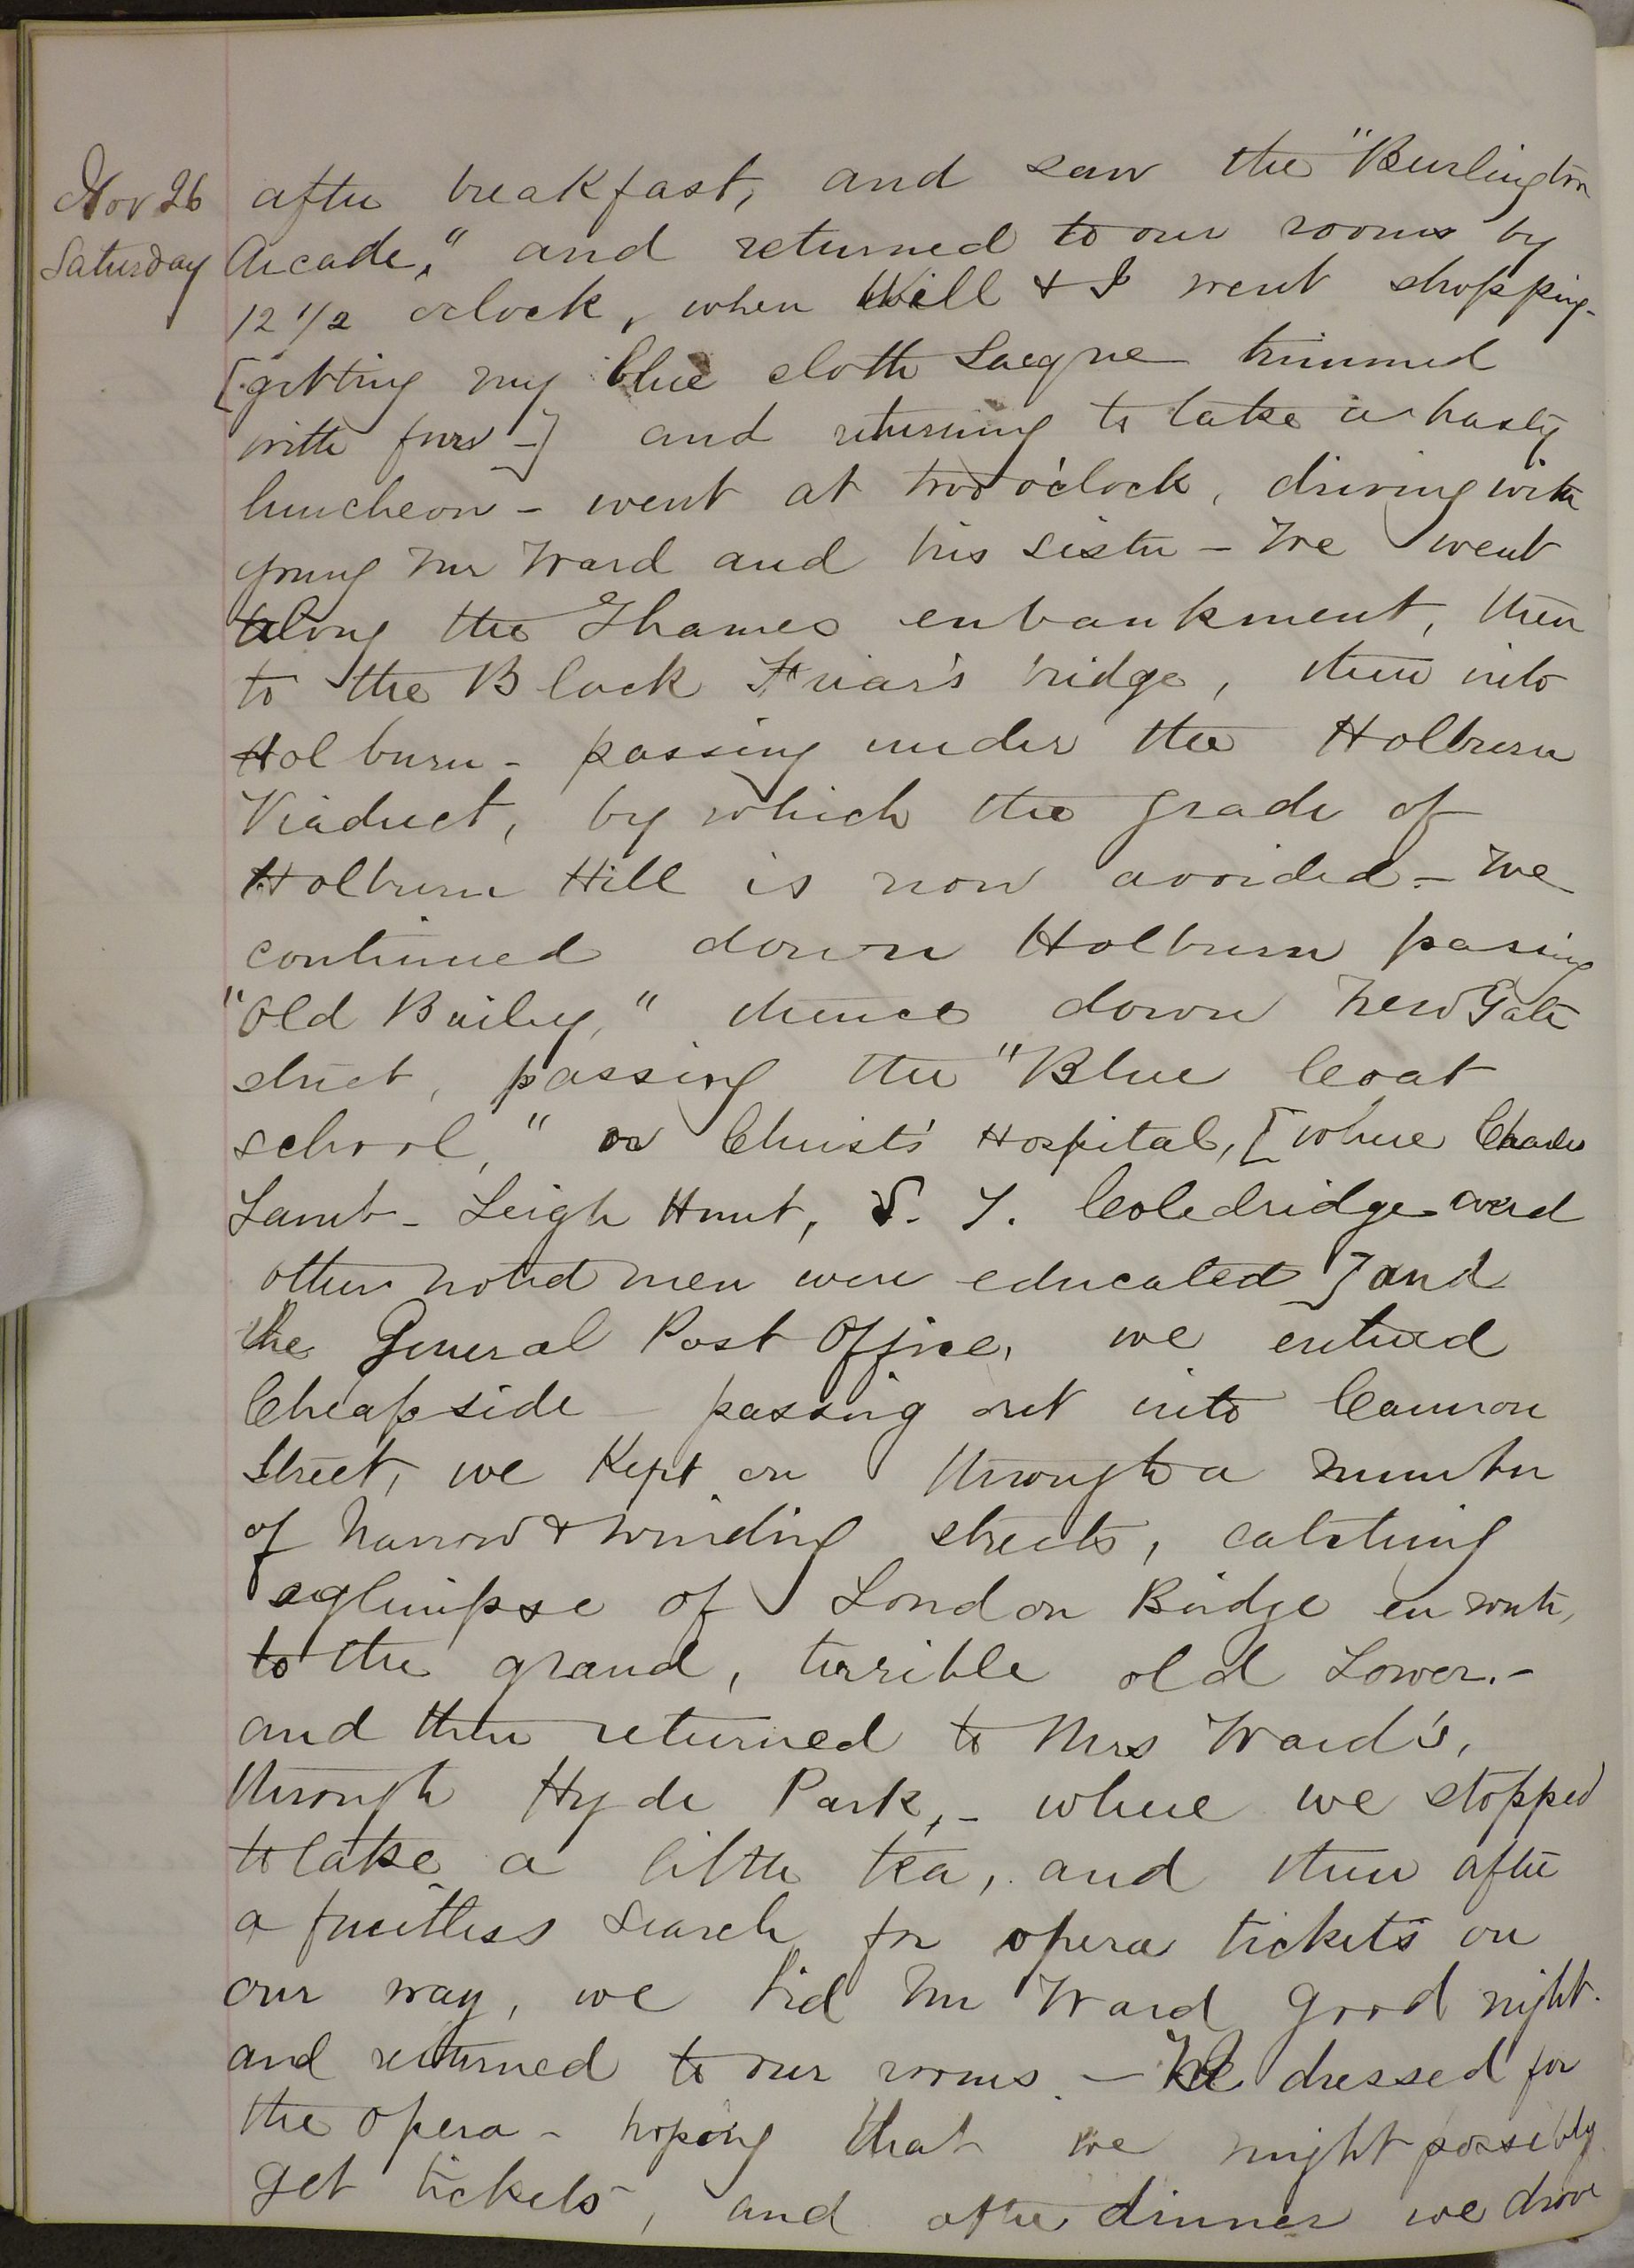 Nov 26
Saturday
after breakfast, and saw the "Burlington
Arcade," and returned to our rooms by
12 1/2 o'clock, when Will & I went shopping -
[getting my blue cloth Sacque trimmed
with fur -] and returning to take a hasty
luncheon - went at two o'clock, driving with
young Mr Ward and his sister - We went
along the Thames enbankment, then
to the Black Friar's bridge, then into
Holburn - passing under the Holburn
Viaduct, by which the grade of
Holburn Hill is now avoided - We
continued down Holburn passing
"Old Bailey," thence down New Gate
street, passing the "Blue Coat
school," or Christ's Hospital, [where Charles
Lamb - Leigh Hunt, S. T. Coledridge and
other noted men were educated] and
the General Post Office, we entered
Cheapside - passing out into Cannon
Street, we kept on through a number
of narrow & winding streets, catching
a glimpse of London Bridge en route,
to the grand, terrible old Tower. -
and then returned to Mrs Ward's,
through Hyde Park, - where we stopped
to take a little tea, and then after
a fruitless search for opera tickets on
our way, we bid Mr Ward good night.
and returned to our rooms. - We dressed for
the opera - hoping that we might possibly
get tickets, and after dinner we drove